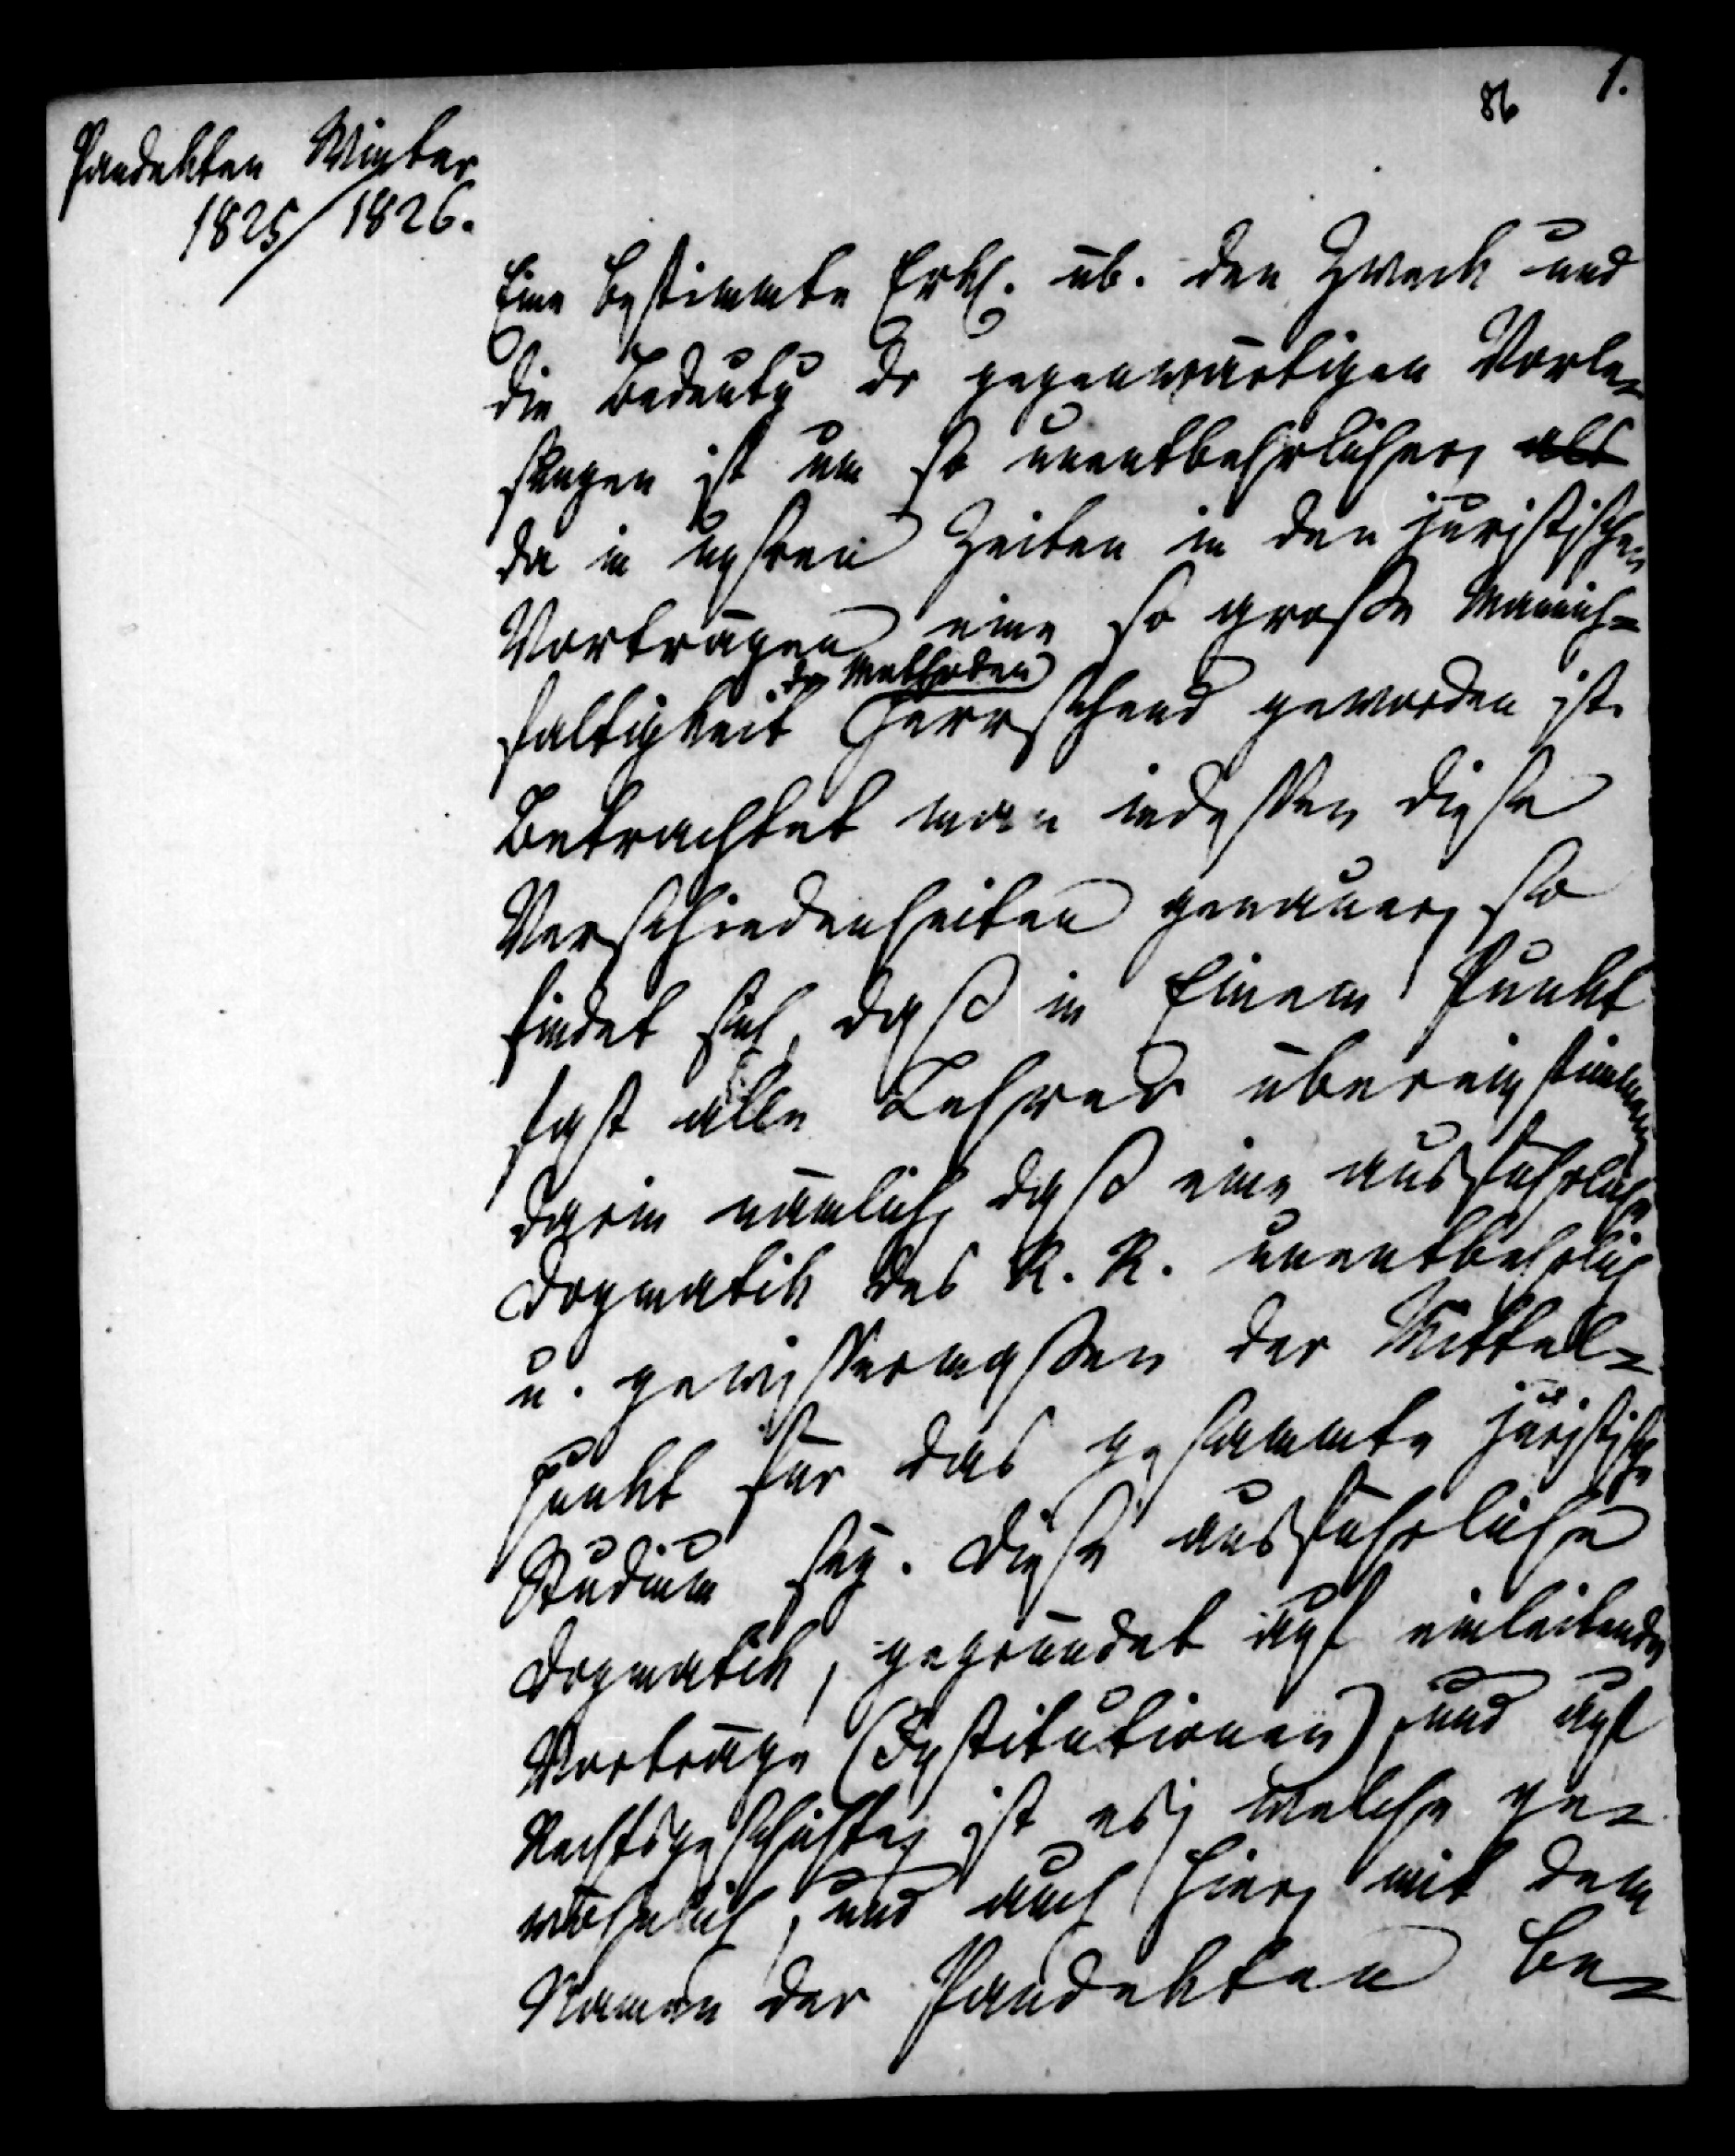 86 1.
Pandekten Winter
1825/1826.
Eine bestimmte Erkl. üb. den Zweck und
die Bedeutg der gegenwärtigen Vorle-
sungen ist um so unentbehrlicher, als
da in unsren Zeiten in den juristischen
Vorträgen eine so große Mannich-
der Methoden
faltigkeit herrschend geworden ist.
Betrachtet man indessen diese
Verschiedenheiten genauer, so
findet sich, daß in Einem Punkt
fast alle Lehrer übereinstimmen,
darin nämlich, daß eine ausführliche
Dogmatik des R. R. unentbehrlich
u. gewissermaßen der Mittel-
punkt für das gesammte juristische
Studium sey. Diese ausführliche
Dogmatik, gegründet auf einleitende
Vorträge (Institutionen) und auf
Rechtsgeschichte, ist es, welche ge-
wöhnlich, und auch hier, mit dem
Namen der Pandekten be-